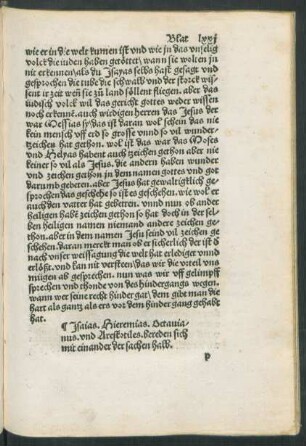 Blat lxxj
wie er in die welt kumen ist vnd wie jn das vnzelig
volck die iuden haben getöttet/ wann sie wolten jn
nit erkennen/ als du Isayas selbs hast gesagt vnd
gesprochen die tube die schwalb vnd der storck wis-
sent ir zeit wen sie zů land söllent fliegen. aber das
iüdisch volck wil das gericht gottes weder wissen
noch erkenne. auch wirdigen herren das Jesus der
war Messias sy/ das ist daran wol schein das nie
kein mensch vff erd so grosse vnnd so vil wunder-
tzeichen hat gethon. wol ist das war das Moses
vnd Helyas habent auch tzeichen gethon aber nie
keiner so vil als Jesus. die andern haben wunder
vnd zeichen gethon in dem namen gottes vnd got
darumb gebetten. aber Jesus hat gewaltigklich ge-
sprochen das geschehe so ist es geschehen. wie wol er
auch den vatter hat gebetten. vnnd nun ob ander
heiligen habē zeichen gethon so hat doch in der sel-
ben heiligen namen niemand andere zeichen ge-
thon. aber in dem namen Jesu seind vil zeichen ge
schehen. daran merckt man ob er sicherlich der ist d̄
nach vnser weissagung die welt hat erlediger vnnd
erlößt. vnd kan nit versteen/ das wir die vorteil vns
mügen ab gesprechen. nun was wir vff gelimpff
sprechen vnd thonde von des hindergangs wegen.
wann wer seine recht hinder gat/ dem gibt man die
hart als gantz als ers vor dem hinder gang gehabt
hat.
¶ Isaias. Hieremias. Octauia-
nus. vnd Aristotiles. bereden sich
mit einander der sachen halb.
p